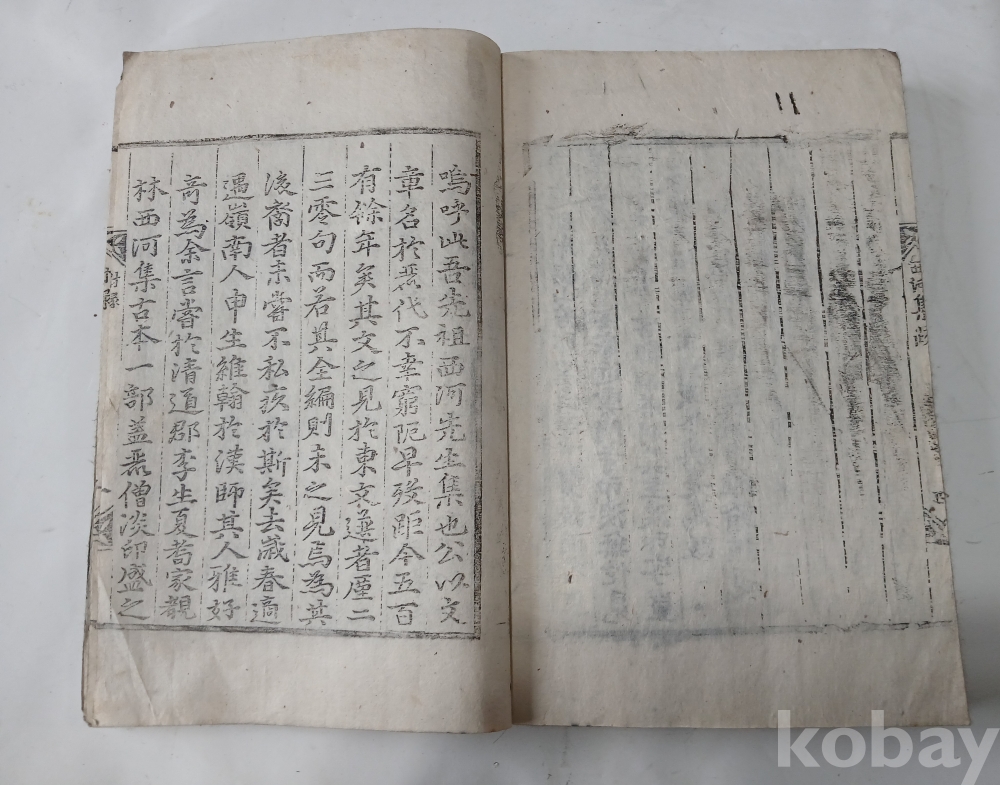 嗚呼此吾先祖西河先生集也公以文
章名於麗代不幸窮阨早歿距今五百
有餘年矣其文之見於東文選者厪二
三零句而若其全編則未之見焉為其
後裔者未嘗不私疚於斯矣去歲春適
遇嶺南人申生維翰於漢師其人雅好
奇為余言嘗於清道郡李生夏耇家覩
林西河集古本一部盖麗僧淡印盛之
附錄
西河集
kobay